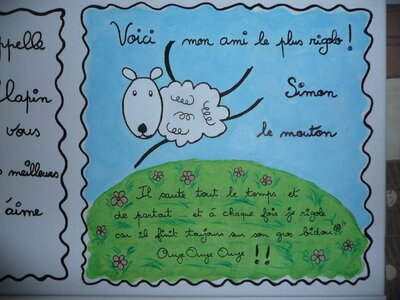 ppelle
lapin
vous
meilleures
aime
Voici mon ami le plus rigolo !
Simon
le mouton
Il saute tout le temps et
de partout .... et à chaque fois je rigole
car il finit toujours sur son gros bidou
Ouye Ouye Ouye !!